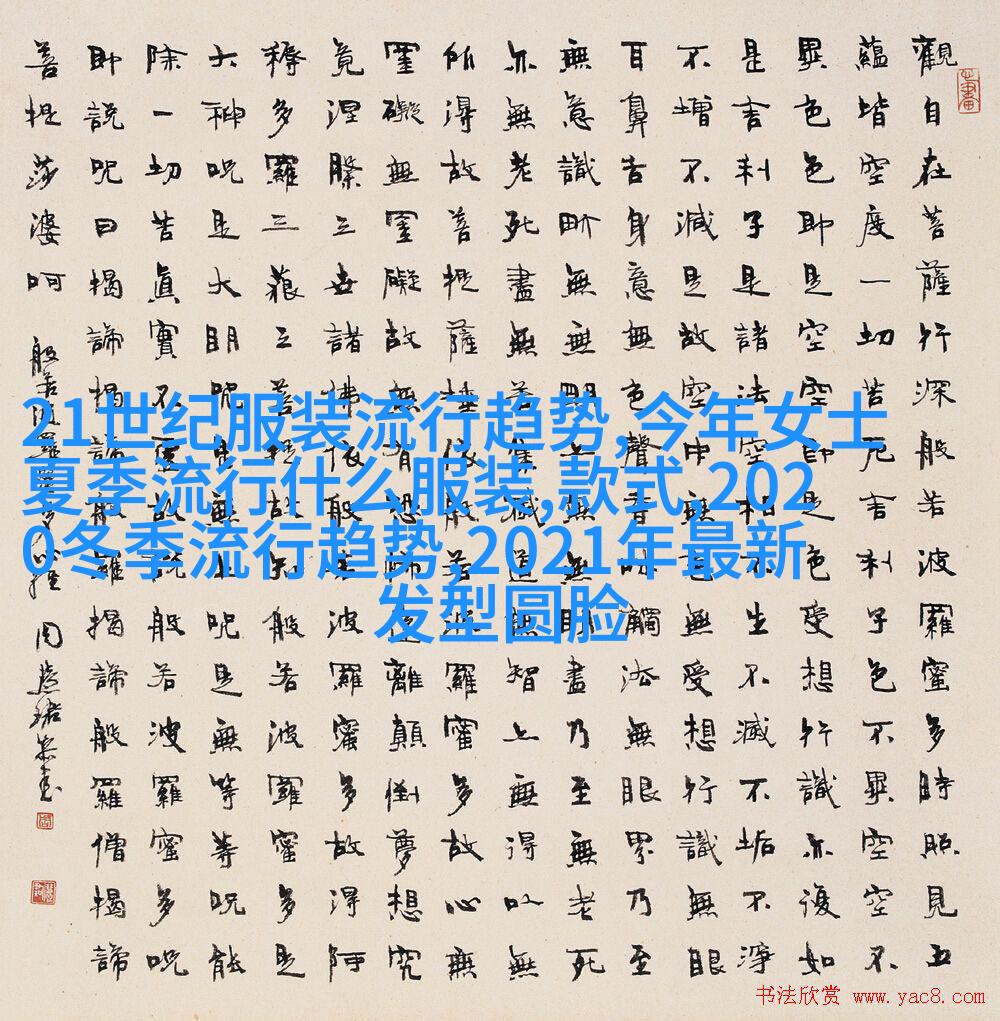 觀自在菩薩行深般若波羅蜜多時照見五
蘊皆空度一切苦厄舍利子色不異空空不
異色色即是空空即是色受想行識亦復如
是舍利子是諸法空相不生不滅不垢不淨
不增不減是故空中無色無受想行識無眼
耳鼻舌身意無色聲香味觸法無眼界乃至
無意識界無無明亦無無明盡乃至無老死
亦無老死盡無苦集滅道無智亦無得以無
所得故菩提薩埵依般若波羅蜜多故心無
罣礙無罣礙故無有恐怖遠離顛倒夢想究
竟涅槃三世諸佛依般若波羅蜜多故得阿
耨多羅三藐三菩提故知般若波羅蜜多是
大神咒是大明咒是無上咒是無等等咒能
除一切苦真實不虛故說般若波羅蜜多咒
即說咒曰揭諦揭諦般羅揭諦般羅僧揭諦
菩提莎婆呵
般若波羅蜜多心經 周慧珺恭書
21世纪服装流行趋势,今年女士
夏季流行什么服装,款式,202
0冬季流行趋势,2021年最新
发型圆脸
书法欣赏 www.yac8.com